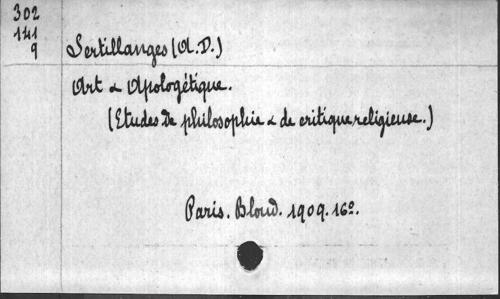 302
141
9
Sertillanges (A.D.)
Art & Apologétique.
(Etudes de philosophie & de critique religieuse.)
Paris. Bloud. 1909. 16º.